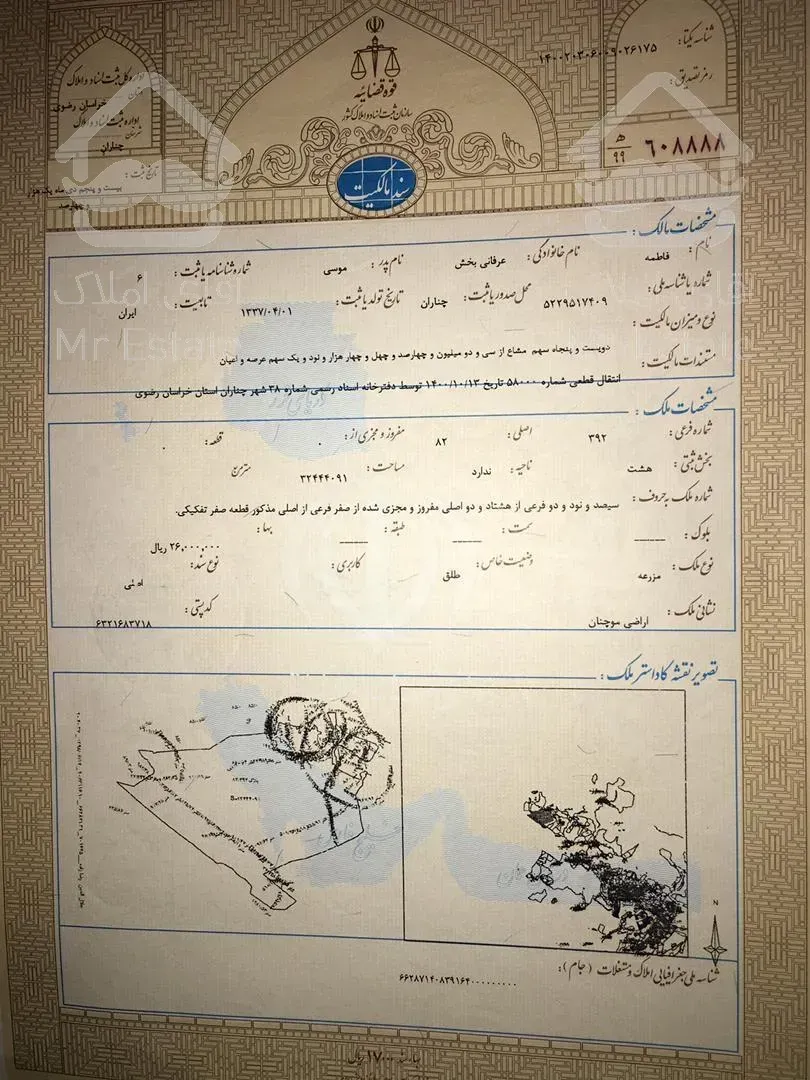 قوه قضائیه
سازمان ثبت اسناد و املاک کشور
سند مالکیت
اداره کل ثبت اسناد و املاک
استان خراسان رضوی
اداره ثبت اسناد و املاک
شهرستان چناران
تاریخ ثبت :
بیست و پنجم دی ماه یک هزار و چهارصد
شناسه یکتا : ۱۴۰۰۲۰۳۰۶۰۰۹۰۲۶۱۷۵
رمز تصدیق :
ه‍/۹۹ ۶۰۸۸۸۸
مشخصات مالک :
نام : فاطمه نام خانوادگی : عرفانی بخش نام پدر : موسی شماره شناسنامه یا ثبت : ۶
شماره یا شناسه ملی : ۵۲۲۹۵۱۷۴۰۹ محل صدور یا ثبت : چناران تاریخ تولد یا ثبت : ۱۳۳۷/۰۴/۰۱ تابعیت : ایران
نوع و میزان مالکیت :
دویست و پنجاه سهم مشاع از سی و دو میلیون و چهارصد و چهل و چهار هزار و نود و یک سهم عرصه و اعیان
مستندات مالکیت :
انتقال قطعی شماره ۵۸۰۰۰ تاریخ ۱۴۰۰/۱۰/۱۳ توسط دفترخانه اسناد رسمی شماره ۳۸ شهر چناران استان خراسان رضوی
مشخصات ملک :
شماره فرعی : ۳۹۲ اصلی : ۸۲ مفروز و مجزی از : ۰ قطعه : ۰
بخش ثبتی : هشت ناحیه : ندارد مساحت : ۳۲۴۴۴۰۹۱ متر مربع
شماره ملک به حروف : سیصد و نود و دو فرعی از هشتاد و دو اصلی مفروز و مجزی شده از صفر فرعی از اصلی مذکور قطعه صفر تفکیکی.
بلوک : ــــ سمت : ــــ طبقه : ــــ بها : ۲۶,۰۰۰,۰۰۰ ریال
نوع ملک : مزرعه وضعیت خاص : طلق کاربری : نوع سند :
نشانی ملک : اراضی موچنان کد پستی : ۶۳۲۱۶۸۳۷۱۸
تصویر نقشه کاداستر ملک :
N
شناسه ملی جغرافیایی املاک و مستغلات (جام) : ۶۶۲۸۷۱۴۰۸۳۹۱۶۴۰۰۰۰۰۰۰۰۰